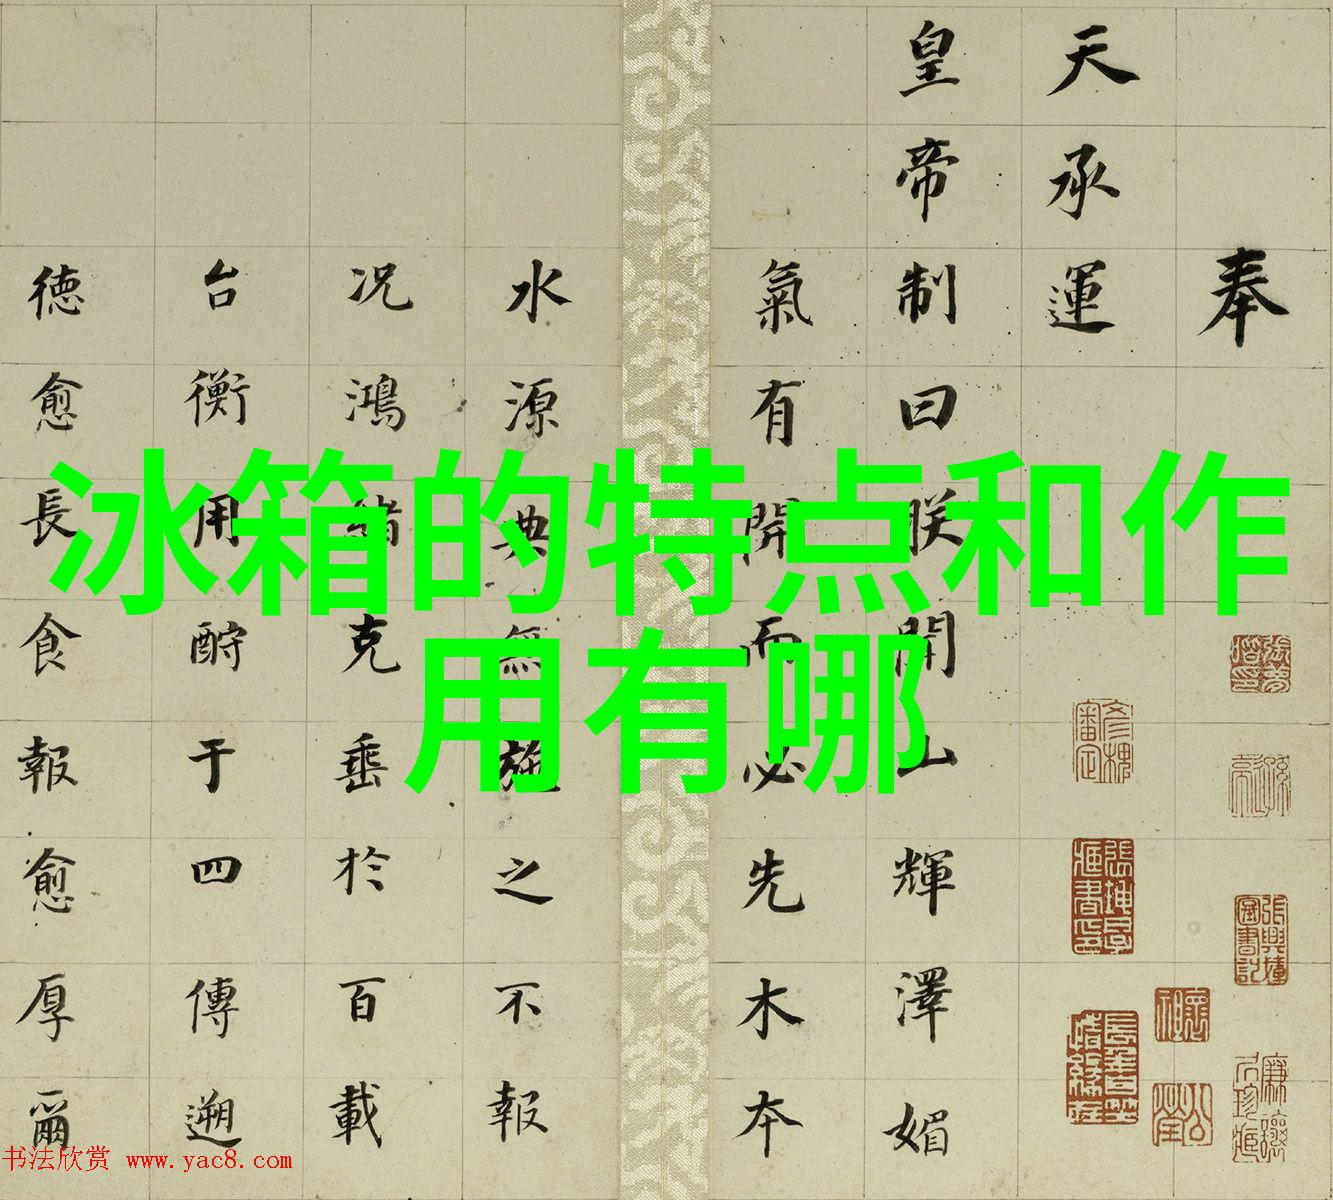 奉
天承運
皇帝制曰朕開山輝澤媚
氣有開而必先木本
水源典無施之不報
況鴻緒克垂於百載
台衡用酧于四傳遡
德愈長食報愈厚爾
冰箱的特点和作
用有哪
书法欣赏 www.yac8.com